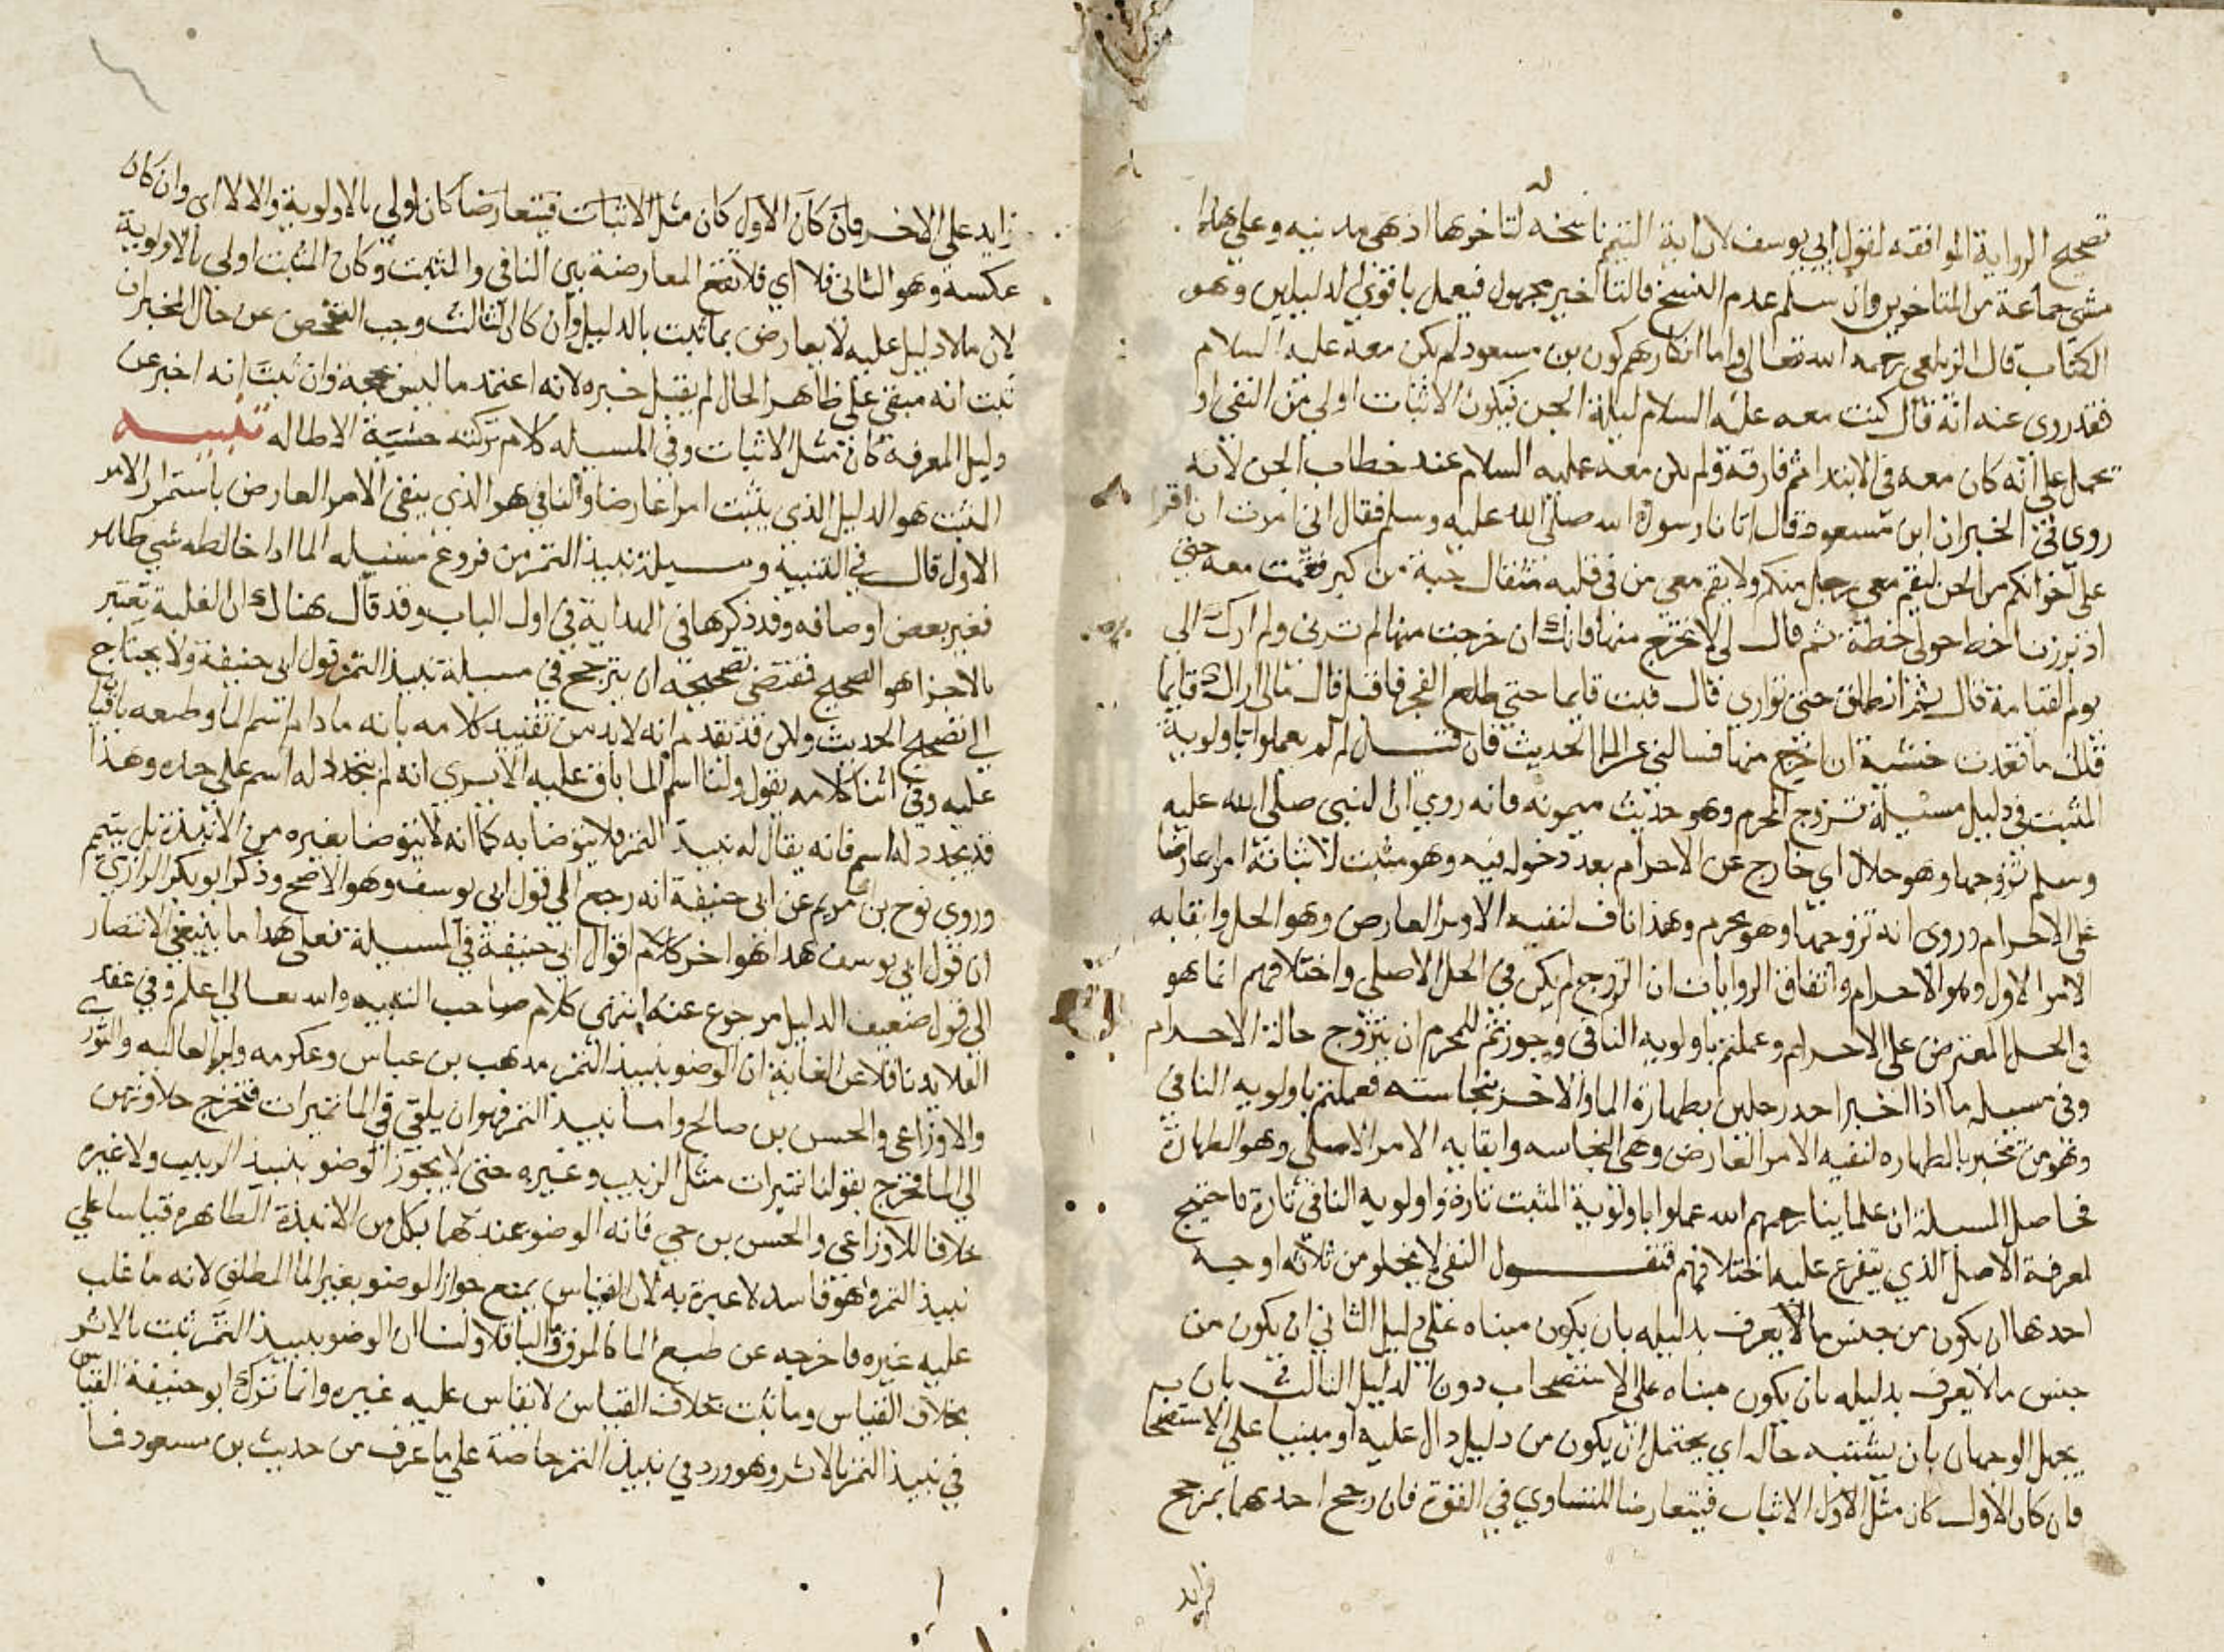 تصحيح الرواية الموافقه لقول ابي يوسف لان اية التيمم ناسخه له لتاخرها اذ هي مدنيه وعلي هذا
مشي جماعة من المتاخرين وان سلم عدم النسخ فالتاخير مجهول فيعمل باقوي الدليلين وهو
الكتاب قال الزيلعي رحمه الله تعالي واما انكارهم كون بن مسعود لم يكن معه عليه السلام
فقد روي عنه انه قال كنت معه عليه السلام ليلة الجن فيكون الاثبات اولي من النفي او
يحمل علي انه كان معه في الابتدا ثم فارقه ولم يكن معه عليه السلام عند خطاب الجن لانه
روي في الخبر ان ابن مسعود قال اتانا رسول الله صلي الله عليه وسلم فقال اني امرت ان اقرا
علي اخوانكم من الجن ليقم معي رجل منكم ولا يقم معي من في قلبه مثقال حبة من كبر فقمت معه حتي
اذ برزنا خط حولي خطة ثم قال لي لا تخرج منها فانك ان خرجت منها لم ترني ولم ارك الي
يوم القيامة قال ثم انطلق حتي تواري قال فبت قايما حتي طلع الفجر فاقبل قال مالي اراك قايما
قلت ما قعدت خشية ان اخرج منها فسالني عن الما الحديث فان قيل لم لم يعملوا باولوية
المثبت في دليل مسيلة تزوج المحرم وهو حديث ميمونه فانه روي ان النبي صلي الله عليه
وسلم تزوجها وهو حلال اي خارج عن الاحرام بعد دخوله فيه وهو مثبت لاثباته امرا عارضا
علي الاحرام وروي انه تزوجها وهو محرم وهذا ناف لنفيه الامر العارض وهو الحل وابقايه
الامر الاول وهو الاحرام واتفاق الروايات ان التزوج لم يكن في الحل الاصلي واختلافهم انما هو
في الحل المعترض علي الاحرام وعملتم باولويه النافي وجوزتم للمحرم ان يتزوج حالة الاحرام
وفي مسيله ما اذا اخبر احد رجلين بطهارة الما والاخر بنجاسته فعملتم باولويه النافي
وهو من تخبر بالطهاره لنفيه الامر العارض وهي النجاسه وابقايه الامر الاصلي وهو الطهارة
فحاصل المسيلة ان علماينا رحمهم الله عملوا باولوية المثبت تارة واولويه النافي تارة فاحتيج
لمعرفة الاصل الذي يتفرع عليه اختلافهم فنقول النفي لا يخلو من ثلاثه اوجه
احدها ان يكون من جنس مالا يعرف بدليله بان يكون مبناه علي دليل الثاني ان يكون من
جنس مالا يعرف بدليله بان يكون مبناه علي الاستصحاب دون الدليل الثالث بان
يجهل الوجهان بان يشتبه حاله اي يحتمل ان يكون من دليل دال عليه او مبنيا علي الاستصحا
فان كان الاول كان مثل الاول الاثبات فيتعارضا للتساوي في القوة فان رجح احدهما بمرجح
زايد
زايد علي الاخر فان كان الاول كان مثل الاثبات فيتعارضا كان اولي بالاولوية والا لا اي وان كان
عكسه وهو الثاني فلا اي فلا تقع المعارضة بين النافي والمثبت وكان المثبت اولي بالاولوية
لان مالا دليل عليه لا يعارض بما ثبت بالدليل وان كان الثالث وجب التفحص عن حال المخبر ان
ثبت انه مبني علي ظاهر الحال لم يقبل خبره لانه اعتمد ما ليس بحجة وان ثبت انه اخبر عن
دليل المعرفة كان مثل الاثبات وفي المسيله كلام تركته خشية الاطاله تنبيه
المثبت هو الدليل الذي يثبت امرا عارضا والنافي هو الذي ينفي الامر العارض باستمرار الامر
الاول قال في التنبيه ومسيلة نبيذ التمر من فروع مسيله الما اذا خالطه شي طاهر
فغير بعض اوصافه وقد ذكرها في الهداية في اول الباب وقد قال هناك ان الغلبة تعتبر
بالاجزا هو الصحيح فمقتضي تصحيحه ان يترجح في مسيلة نبيذ التمر قول ابي حنيفة ولا يحتاج
الي تصحيح الحديث ولكن قد تقدم انه لابد من تقييد كلامه بانه ما دام اسم الما وطبعه باقيان
عليه وفي اثنا كلامه يقول ولنا اسم الما باق عليه الا يري انه لم يتجدد له اسم علي حده وهذا
قد يجدد له اسم فانه يقال له نبيذ التمر فلا يتوضا به كما انه لا يتوضا بغيره من الانبذة بل يتيمم
وروي نوح بن مريم عن ابي حنيفة انه رجع الي قول ابي يوسف وهو الاصح وذكر ابو بكر الرازي
ان قول ابي يوسف هذا هو اخر كلام اقوال ابي حنيفة في المسيلة فعلي هذا ما ينبغي الانتصار
الي قول ضعيف الدليل مرجوع عنه انتهي كلام صاحب التنبيه والله تعالي اعلم وفي عقد
القلايد ناقلا عن الغاية ان الوضو بنبيذ التمر مذهب بن عباس وعكرمه وابي العاليه والثوري
والاوزاعي والحسن بن صالح واما نبيذ التمر فهو ان يلقي في الما تميرات فتخرج حلاوتهن
الي الما فخرج بقولنا تميرات مثل الزبيب وغيره حتي لا يجوز الوضو بنبيذ الزبيب ولا غيره
خلافا للاوزاعي والحسن بن حي فانه الوضو عندهما بكل من الانبذة الطاهره قياسا علي
نبيذ التمر وهو فاسد لا عبرة به لان القياس يمنع جواز الوضو بغير الما المطلق لانه ما غلب
عليه غيره فاخرجه عن طبع الما كالمرق وما الباقلا ولنا ان الوضو بنبيذ التمر ثبت بالاثر
بخلاف القياس وما ثبت بخلاف القياس لا يقاس عليه غيره وانما ترك ابو حنيفة القياس
في نبيذ التمر بالاثر وهو ورد في نبيذ التمر خاصة علي ما عرف من حديث بن مسعود فما